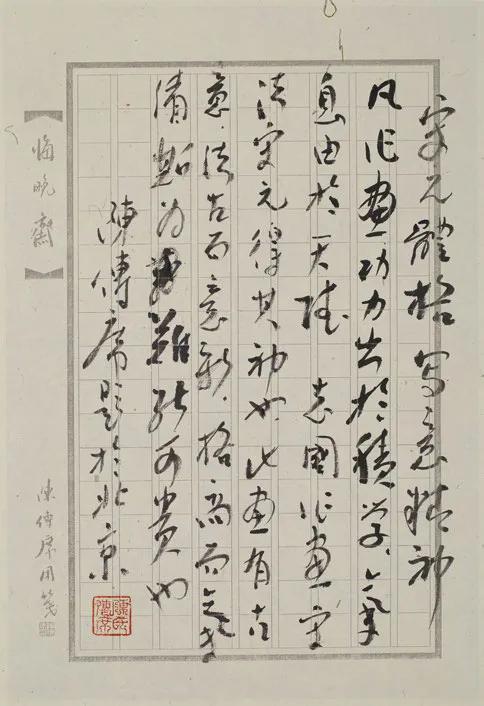 宋元體格 寫意精神
凡作畫功力出於積學，氣
息由於天 志國作畫宗
法宋元得其神也，此畫有古
意，法古而意新，格高而氣
清，斯为難能可貴也
陳傳席題於北京
悔晚齋
陳傳席用箋